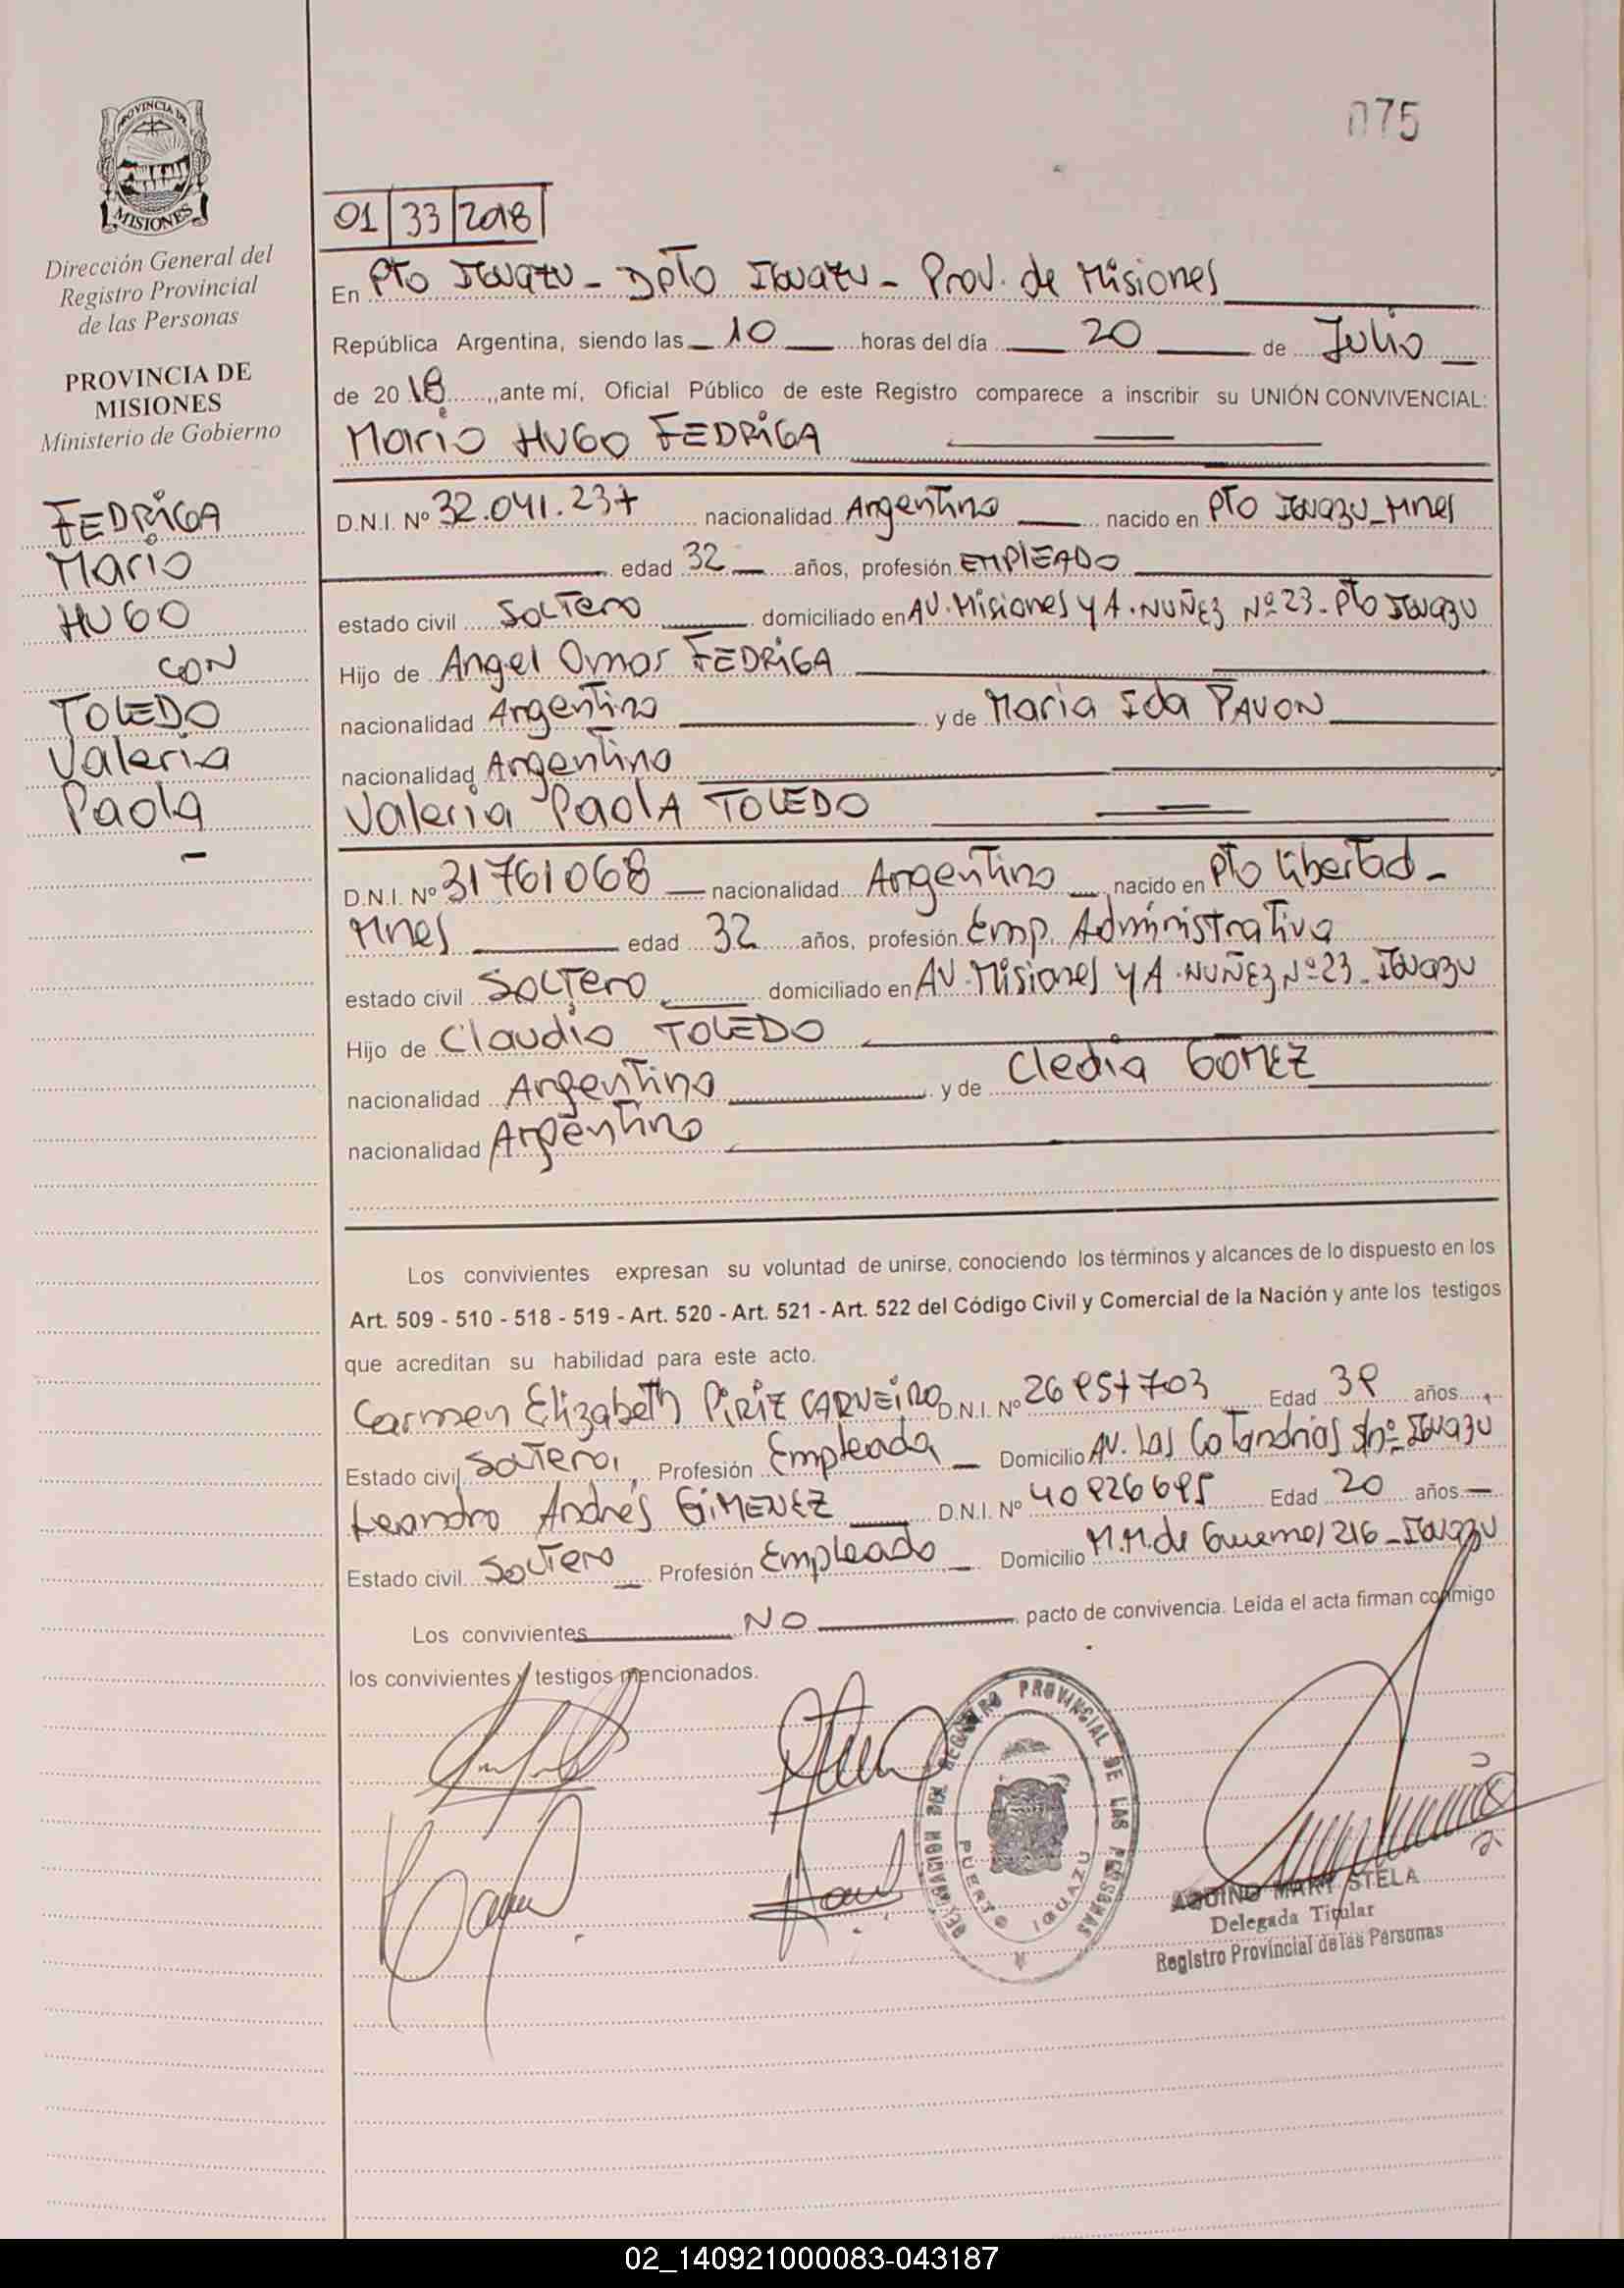 075
PROVINCIA DE
MISIONES
Dirección General del
Registro Provincial
de las Personas
PROVINCIA DE
MISIONES
Ministerio de Gobierno
FEDRiGA
Mario
HUGO
CON
TOLEDO
Valeria
Paola
01 | 33 | 2018
En Pto IGuazu - Dpto IGuazu - Prov. de Misiones
República Argentina, siendo las 10 horas del día 20 de Julio
de 2018, ante mí, Oficial Público de este Registro comparece a inscribir su UNIÓN CONVIVENCIAL:
Mario HUGO FEDRiGA
D.N.I. Nº 32.041.237 nacionalidad Argentino nacido en Pto IGuazu-Mnes
edad 32 años, profesión EMPlEADO
estado civil SOLTero domiciliado en AV. Misiones y A. NUÑEz Nº 23 - Pto IGuazu
Hijo de Angel Omar FEDRiGA
nacionalidad Argentino y de Maria Ida PAVON
nacionalidad Argentino
Valeria PaolA TOLEDO
D.N.I. Nº 31761068 nacionalidad Argentino nacido en Pto libertad -
Mnes edad 32 años, profesión Emp. Administrativa
estado civil SOLTero domiciliado en AV. Misiones y A. NUÑEz Nº 23 - IGuazu
Hijo de Claudio TOLEDO
nacionalidad Argentino y de Cledia GOMEZ
nacionalidad Argentino
Los convivientes expresan su voluntad de unirse, conociendo los términos y alcances de lo dispuesto en los
Art. 509 - 510 - 518 - 519 - Art. 520 - Art. 521 - Art. 522 del Código Civil y Comercial de la Nación y ante los testigos
que acreditan su habilidad para este acto.
Carmen Elizabeth PiRiZ CARNEiRO D.N.I. Nº Edad 39 años
Estado civil SOLTera, Profesión Empleada Domicilio AV. Las Calandrias S/nº IGuazu
Leandro Andrés GiMENEZ D.N.I. Nº Edad 20 años
Estado civil SOLTero Profesión Empleado Domicilio M.M. de Guemes 216 - IGuazu
Los convivientes NO pacto de convivencia. Leída el acta firman conmigo
los convivientes y testigos mencionados.
DELEGACION DEL REGISTRO PROVINCIAL DE LAS PERSONAS
PUERTO IGUAZU
AQUINO MARY STELA
Delegada Titular
Registro Provincial de las Personas
02_140921000083-043187